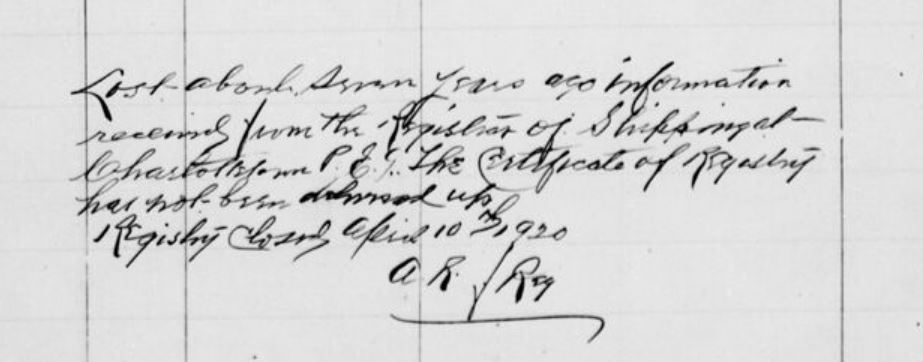 Lost about seven years ago information
received from the Registrar of Shipping at
Charlottetown P. E. I. The Certificate of Registry
has not been delivered up
Registry Closed April 10th 1920
A R. / Reg